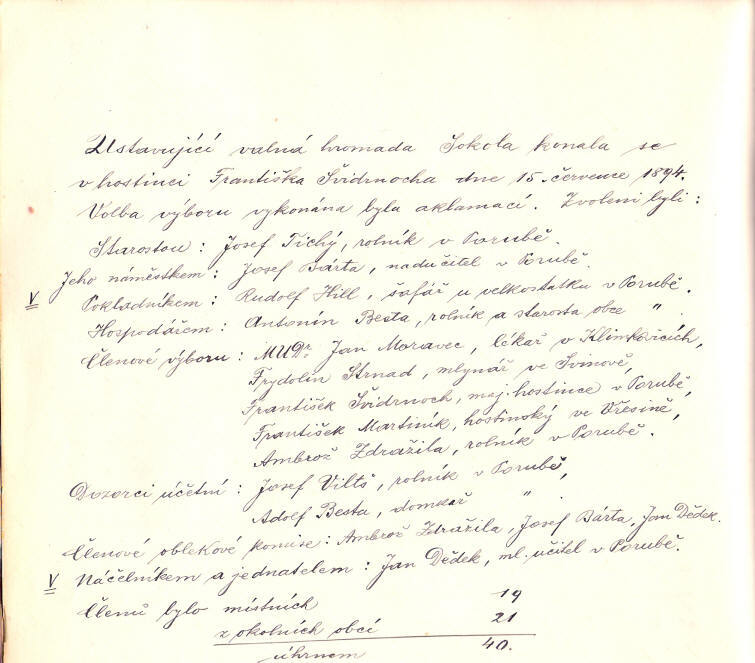 Ustavující valná hromada Sokola konala se
v hostinci Františka Švidrnocha dne 15. července 1894.
Volba výboru vykonána byla aklamací. Zvoleni byli:
Starostou: Josef Tichý, rolník v Porubě.
Jeho náměstkem: Josef Bárta, nadučitel v Porubě.
V Pokladníkem: Rudolf Hill, šafář u velkostatku v Porubě.
Hospodářem: Antonín Besta, rolník a starosta obce ".
Členové výboru: MUDr. Jan Moravec, lékař v Klimkovicích,
Frydolín Strnad, mlynář ve Svinově,
František Švidrnoch, maj. hostince v Porubě,
František Martiník, hostinský ve Vřesině,
Ambrož Zdražila, rolník v Porubě.
Dozorci účetní: Josef Viltš, rolník v Porubě,
Adolf Besta, domkař ".
Členové oblekové komise: Ambrož Zdražila, Josef Bárta, Jan Dědek.
V Náčelníkem a jednatelem: Jan Dědek, ml. učitel v Porubě.
Členů bylo místních 19
z okolních obcí 21
úhrnem 40.